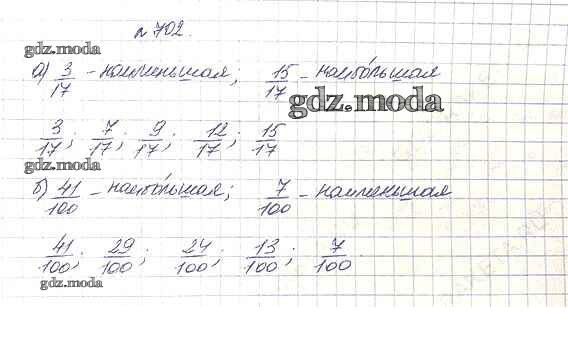 № 702.
gdz.moda
а) 3/17 - наименьшая; 15/17 - наибо́льшая
gdz.moda
3/17; 7/17; 9/17; 12/17; 15/17
gdz.moda
б) 41/100 - наибо́льшая; 7/100 - наименьшая
41/100; 29/100; 24/100; 13/100; 7/100
gdz.moda